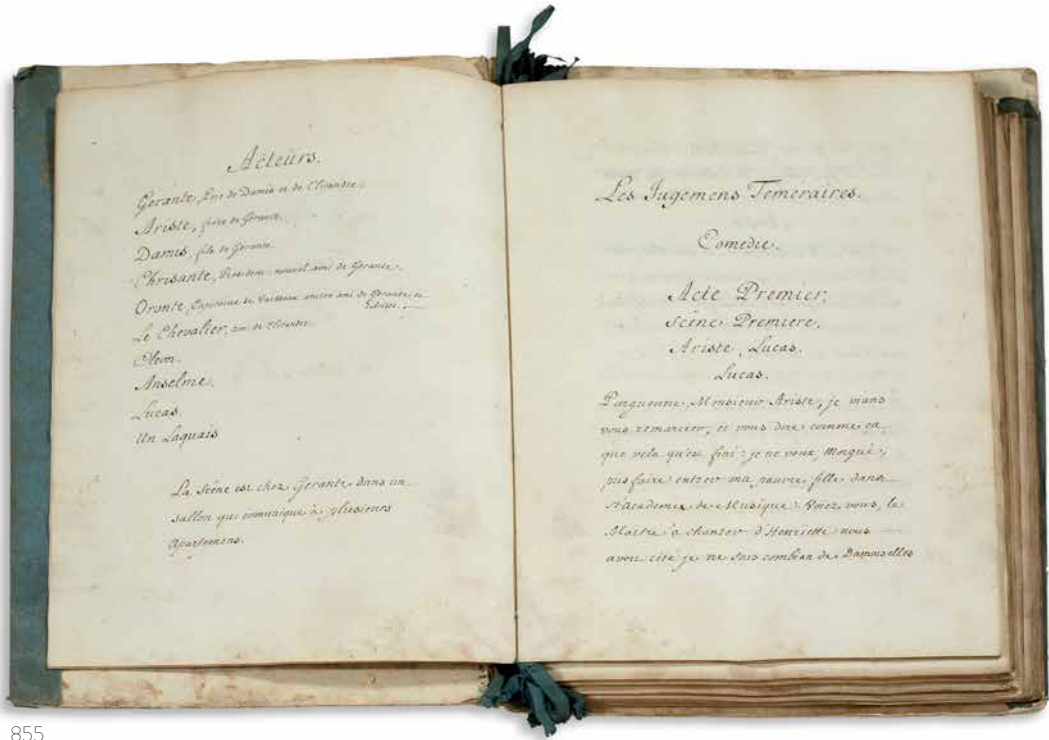 Acteurs.
Gerante, Pere de Damis et de Cléandre.
Ariste, frere de Gerante.
Damis, fils de Gerante.
Chrisante, nouvel ami de Gerante.
Oronte, Capitaine de Vaisseau ancien ami de Gerante, et
Le Chevalier, ami de
Cleon.
Anselme.
Lucas.
Un Laquais
La Scéne est chez Gerante dans un
sallon qui comunique à plusieurs
Apartemens.
Les Jugemens Teméraires.
Comedie.
Acte Premier.
Scéne Premiere.
Ariste, Lucas.
Lucas.
Parguenne, Monsieur Ariste, je viens
vous remarcier, et vous dire comme ça
que vela qu'est fini; je ne veux, morgué,
pus faire entrer ma pauvre fille dans
st'Academie de Musique. Voiez vous, le
Maitre à chanter d'Henriette nous
avoit cité je ne sais combian de Damoiselles
855